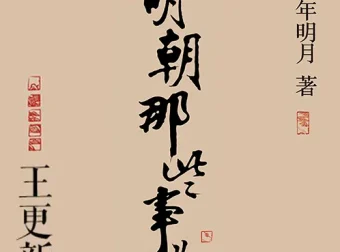 年明月 著
明朝那些事
王更新